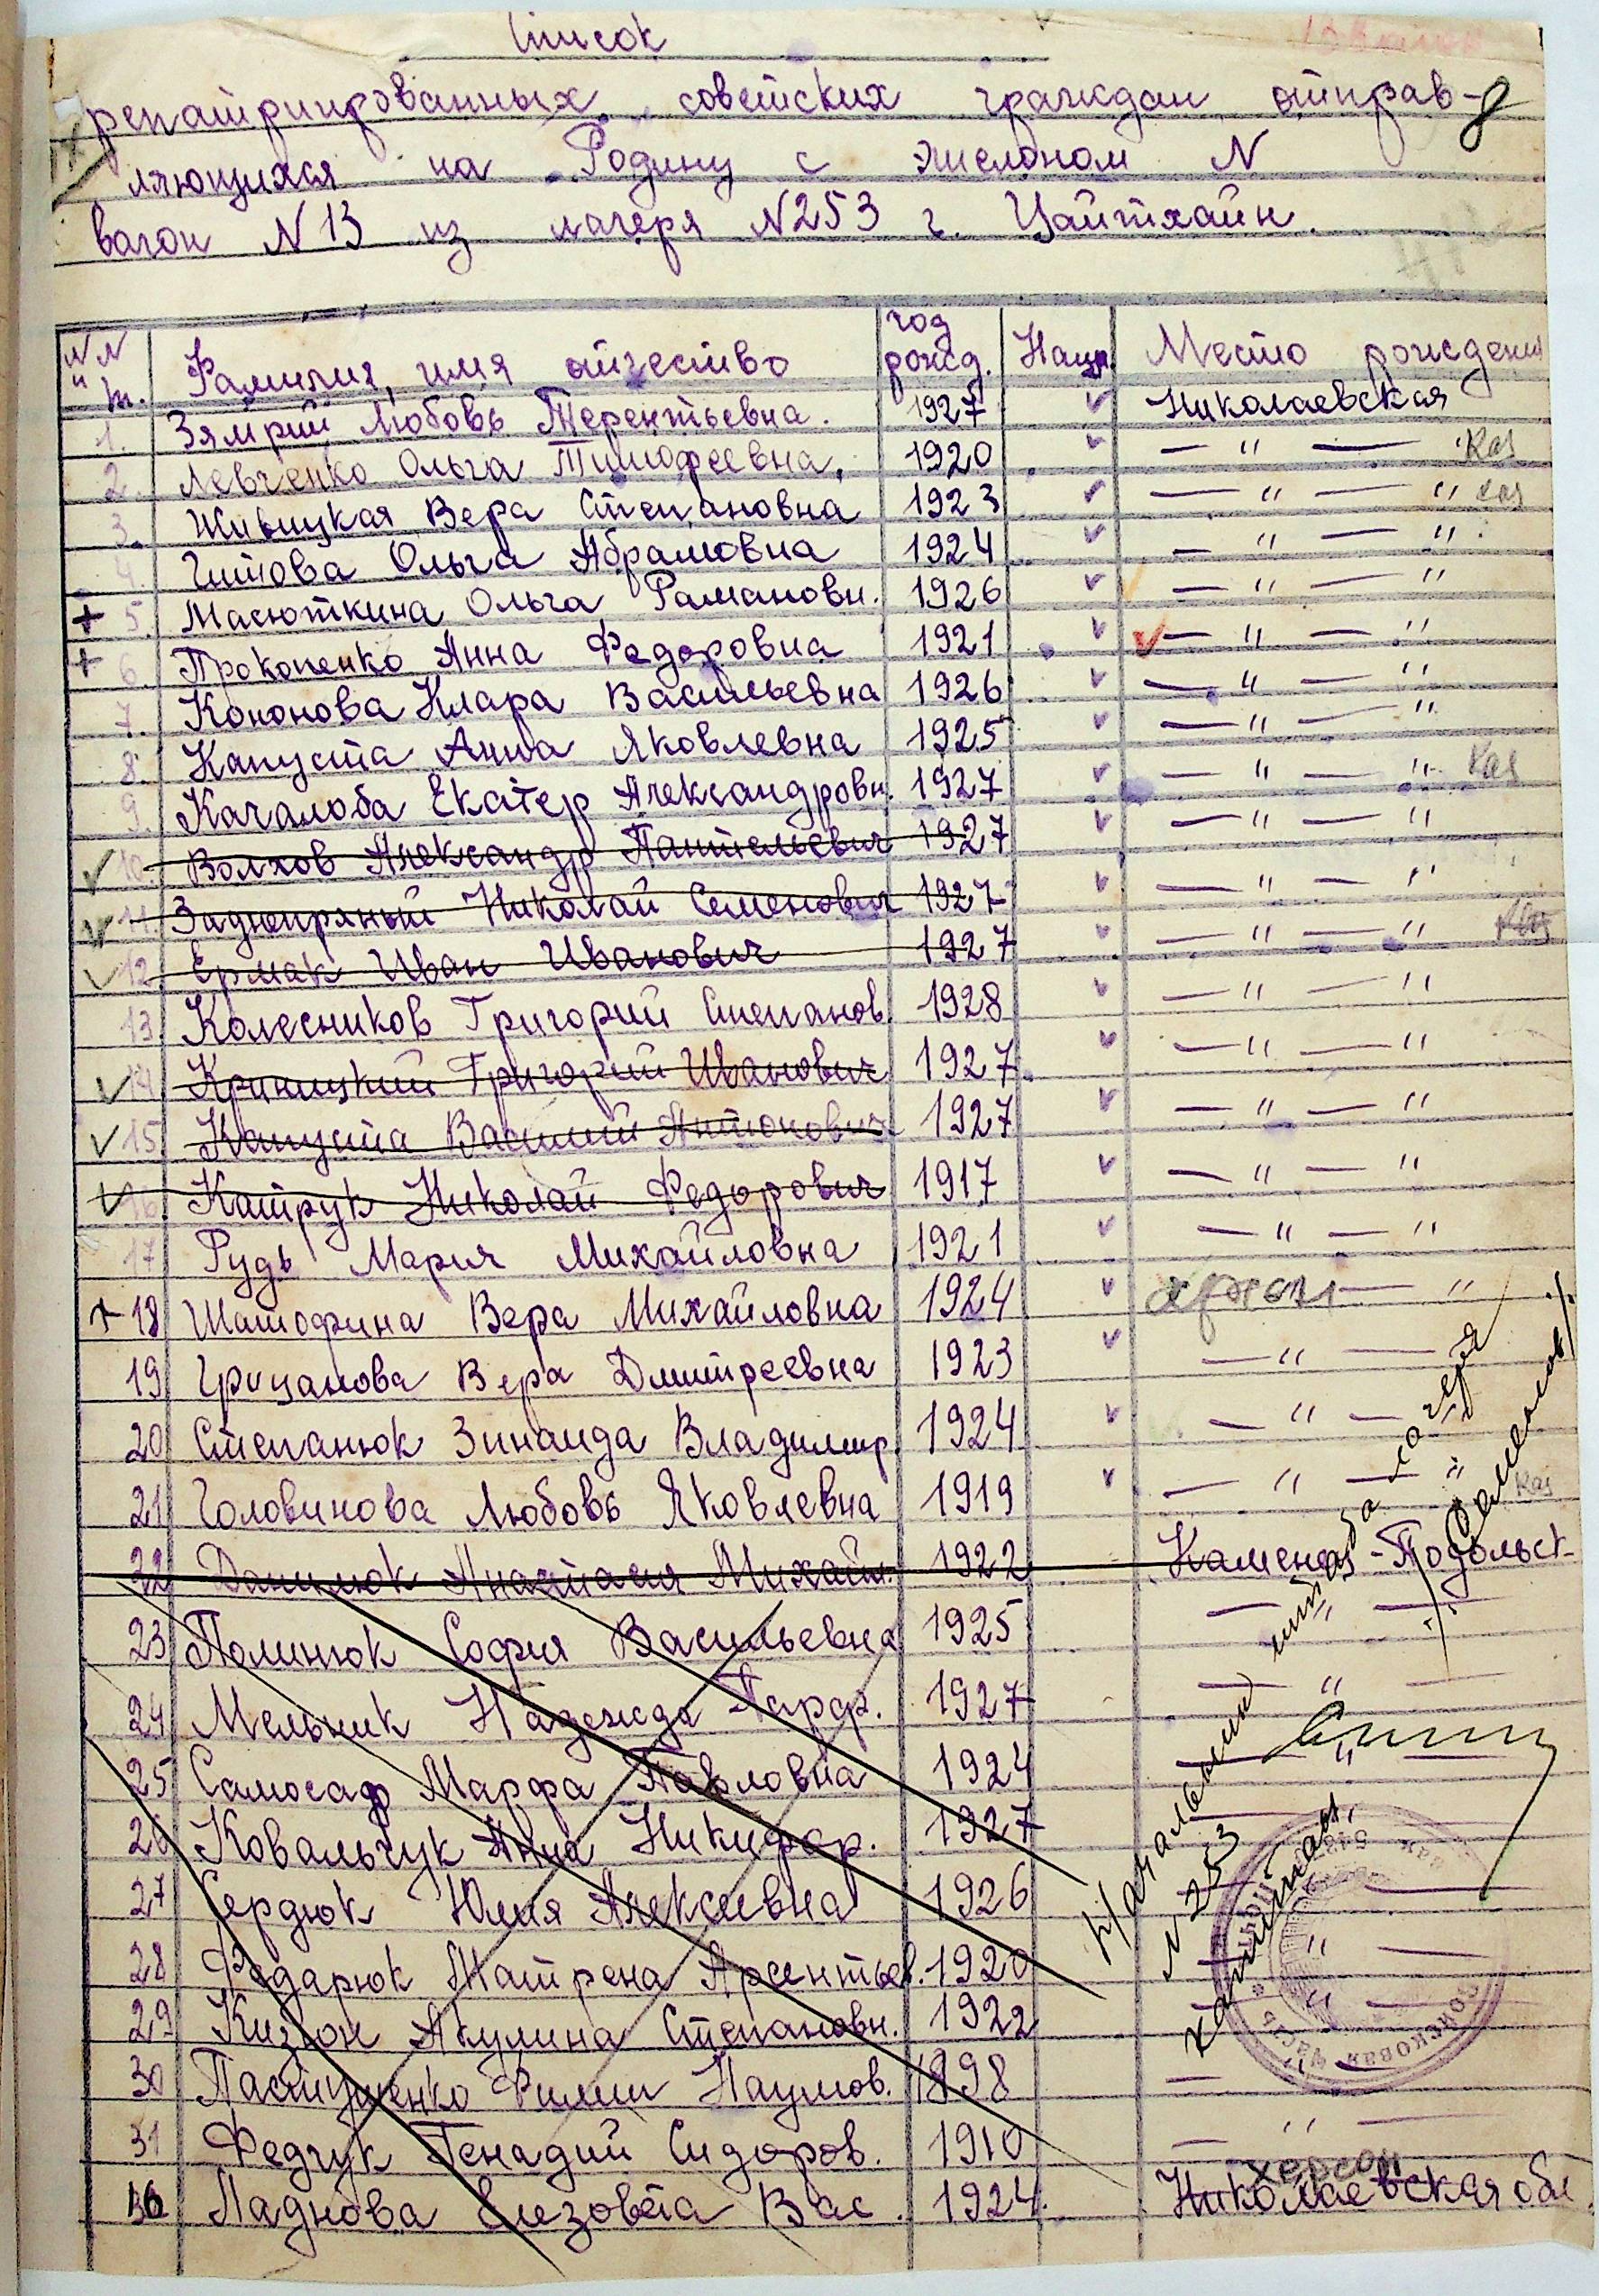 Список
репатриированных советских граждан отправ-
ляющихся на Родину с эшелоном N
вагон N 13 из лагеря N 253 г. Цайтхайн.
NN п п. Фамилия, имя отчество год рожд. Нацн. Место рождения
1. Любовь Терентьевна. 1927 Николаевская
2. Левченко Ольга Тимофеевна, 1920 — " — "
3. Живицкая Вера Степановна 1923 — " — "
4. Гитова Ольга Абрамовна 1924 — " — "
+ 5. Масюткина Ольга Рамановн. 1926 — " — "
+ 6. Прокопенко Анна Федоровна 1921 — " — "
7. Кононова Клара Васильевна 1926 — " — "
8. Капуста Анна Яковлевна 1925 — " — "
9. Качалова Екатер Александровн. 1927 — " — "
10. Волхов Александр Пантелеевич 1927 — " — "
11. Заднепряный Николай Семенович 1927 — " — "
12 Ермак Иван Иванович 1927 — " — "
13. Колесников Григорий Степанов. 1928 — " — "
14 Криницкий Григорий Иванович 1927 — " — "
15 Капуста Василий Антонович 1927 — " — "
16 Катрук Николай Федорович 1917 — " — "
17 Рудь Мария Михайловна 1921 — " — "
+ 18 Шатофина Вера Михайловна 1924 — "
19 Грицанова Вера Дмитреевна 1923 — " —
20 Степанюк Зинаида Владимир. 1924 — " — "
21 Головинова Любовь Яковлевна 1919 — " — "
22 Данилюк Анастасия Михайл. 1922 Каменец-Подольск-
23 Полинюк София Васильевна 1925 — " —
24 Мельник Надежда Парф. 1927 — " —
25 Самосад Марфа Павловна 1924 — " —
26 Ковальчук Анна Никифор. 1927
27 Сердюк Юлия Алексеевна 1926
28 Федарюк Матрена Арсентьев. 1920 — " —
29 Кизюн Акулина Степановн. 1922 — " —
30 Пастушенко Филип Наумов. 1898 — "
31 Федчук Генадий Сидоров. 1910 — " —
херсон
36 Ладнова Елезовета Вас. 1924. Николаевская обл.
Начальник штаба лагеря
N 253
капитан
/Самсонов/